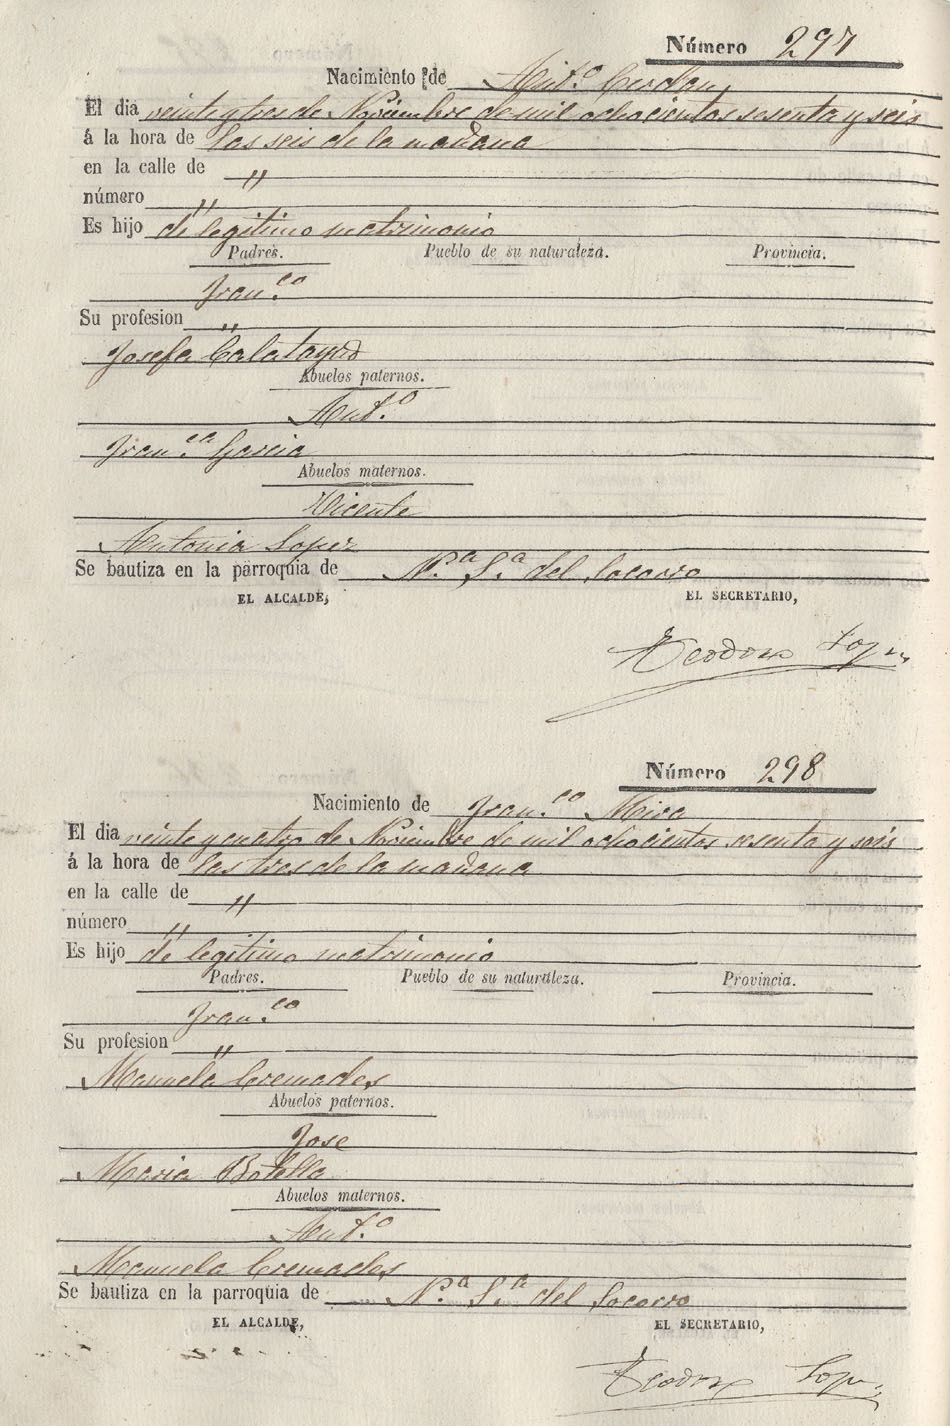 Número 297
Nacimiento de Ant.º Cerdan
El dia veinte y tres de Noviembre de mil ochocientos sesenta y seis
á la hora de las seis de la mañana
en la calle de "
número "
Es hijo de legitimo matrimonio
Padres. Pueblo de su naturaleza. Provincia.
Fran.co
Su profesion "
Josefa Calatayud
Abuelos paternos.
Ant.º
Fran.ca Garcia
Abuelos maternos.
Vicente
Antonia Lopez
Se bautiza en la parroquia de N.ª S.ª del Socorro
EL ALCALDE, EL SECRETARIO,
Teodoro Lopez
Número 298
Nacimiento de Fran.co Mira
El dia veinte y cuatro de Noviembre de mil ochocientos sesenta y seis
á la hora de las tres de la mañana
en la calle de "
número "
Es hijo de legitimo matrimonio
Padres. Pueblo de su naturaleza. Provincia.
Fran.co
Su profesion "
Manuela Cremades
Abuelos paternos.
Jose
Maria Botella
Abuelos maternos.
Ant.º
Manuela Cremades
Se bautiza en la parroquia de N.ª S.ª del Socorro
EL ALCALDE, EL SECRETARIO,
Teodoro Lopez